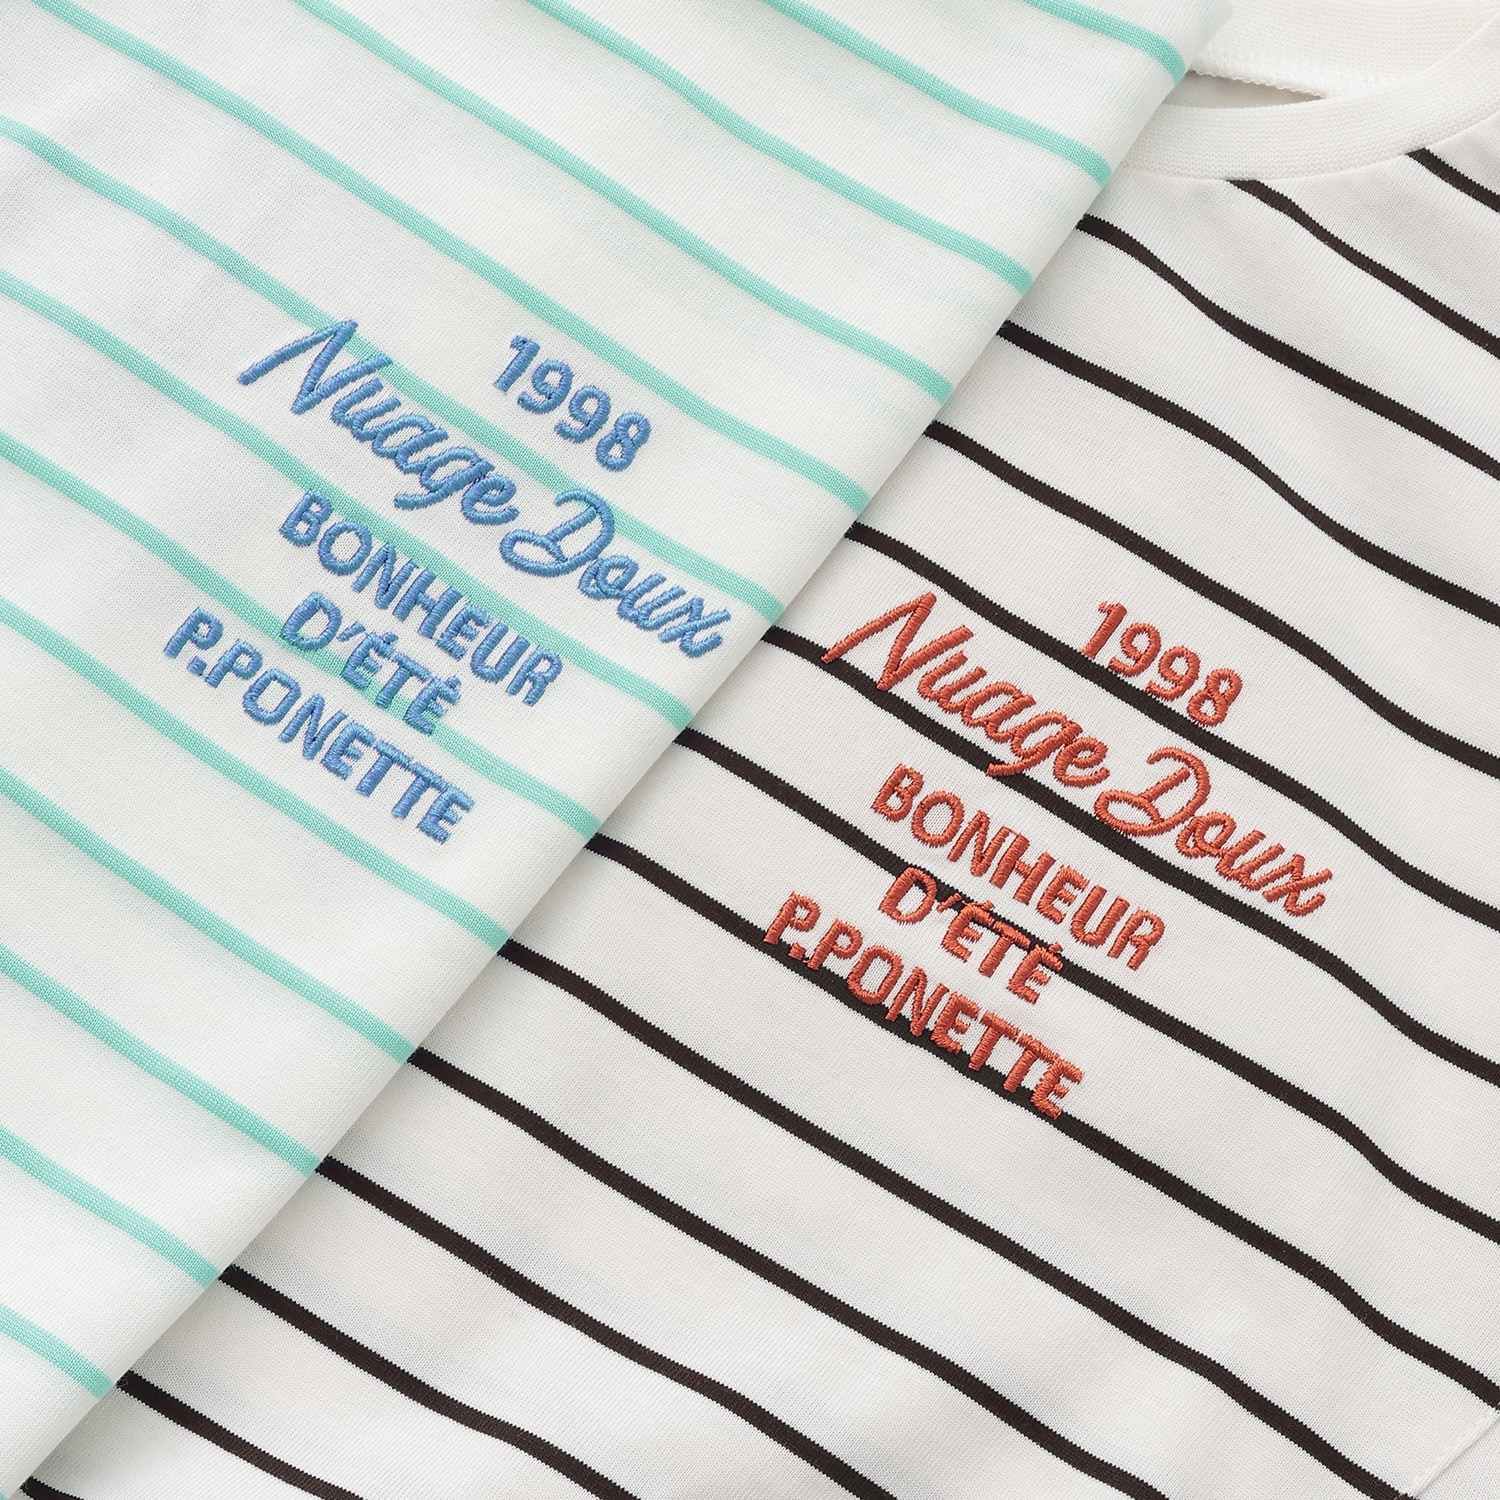 1998
Nuage Doux
BONHEUR
D'ÉTÉ
P.PONETTE
1998
Nuage Doux
BONHEUR
D'ÉTÉ
P.PONETTE